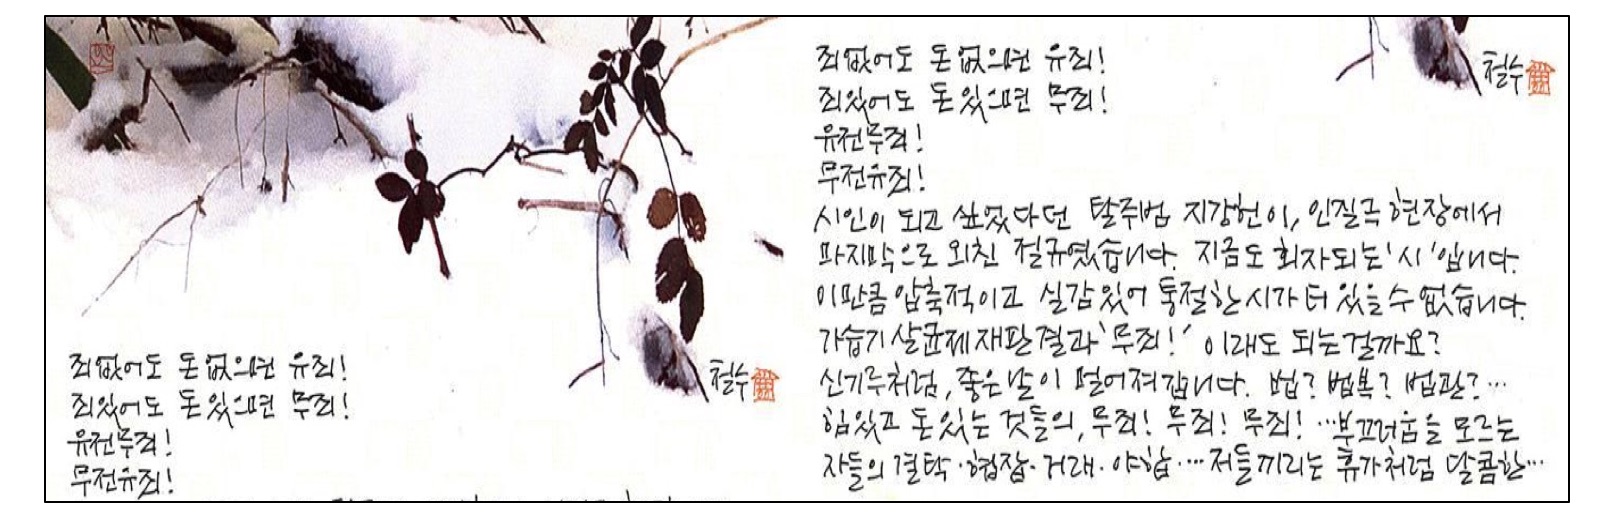 철수
죄없어도 돈없으면 유죄!
죄있어도 돈있으면 무죄!
유전무죄!
무전유죄!
철수
죄없어도 돈없으면 유죄!
죄있어도 돈있으면 무죄!
유전무죄!
무전유죄!
시인이 되고 싶었다던 탈주범 지강헌이, 인질극 현장에서
마지막으로 외친 절규였습니다. 지금도 회자되는 '시'입니다.
이만큼 압축적이고 실감있어 통절한 시가 더 있을 수 없습니다.
가습기 살균제 재판결과 '무죄!' 이래도 되는걸까요?
신기루처럼, 좋은날이 멀어져갑니다. 법? 법복? 법관?…
힘있고 돈있는 것들의, 무죄! 무죄! 무죄! …부끄러움을 모르는
자들의 결탁·협잡·거래·야합·…저들끼리는 휴가처럼 달콤한…